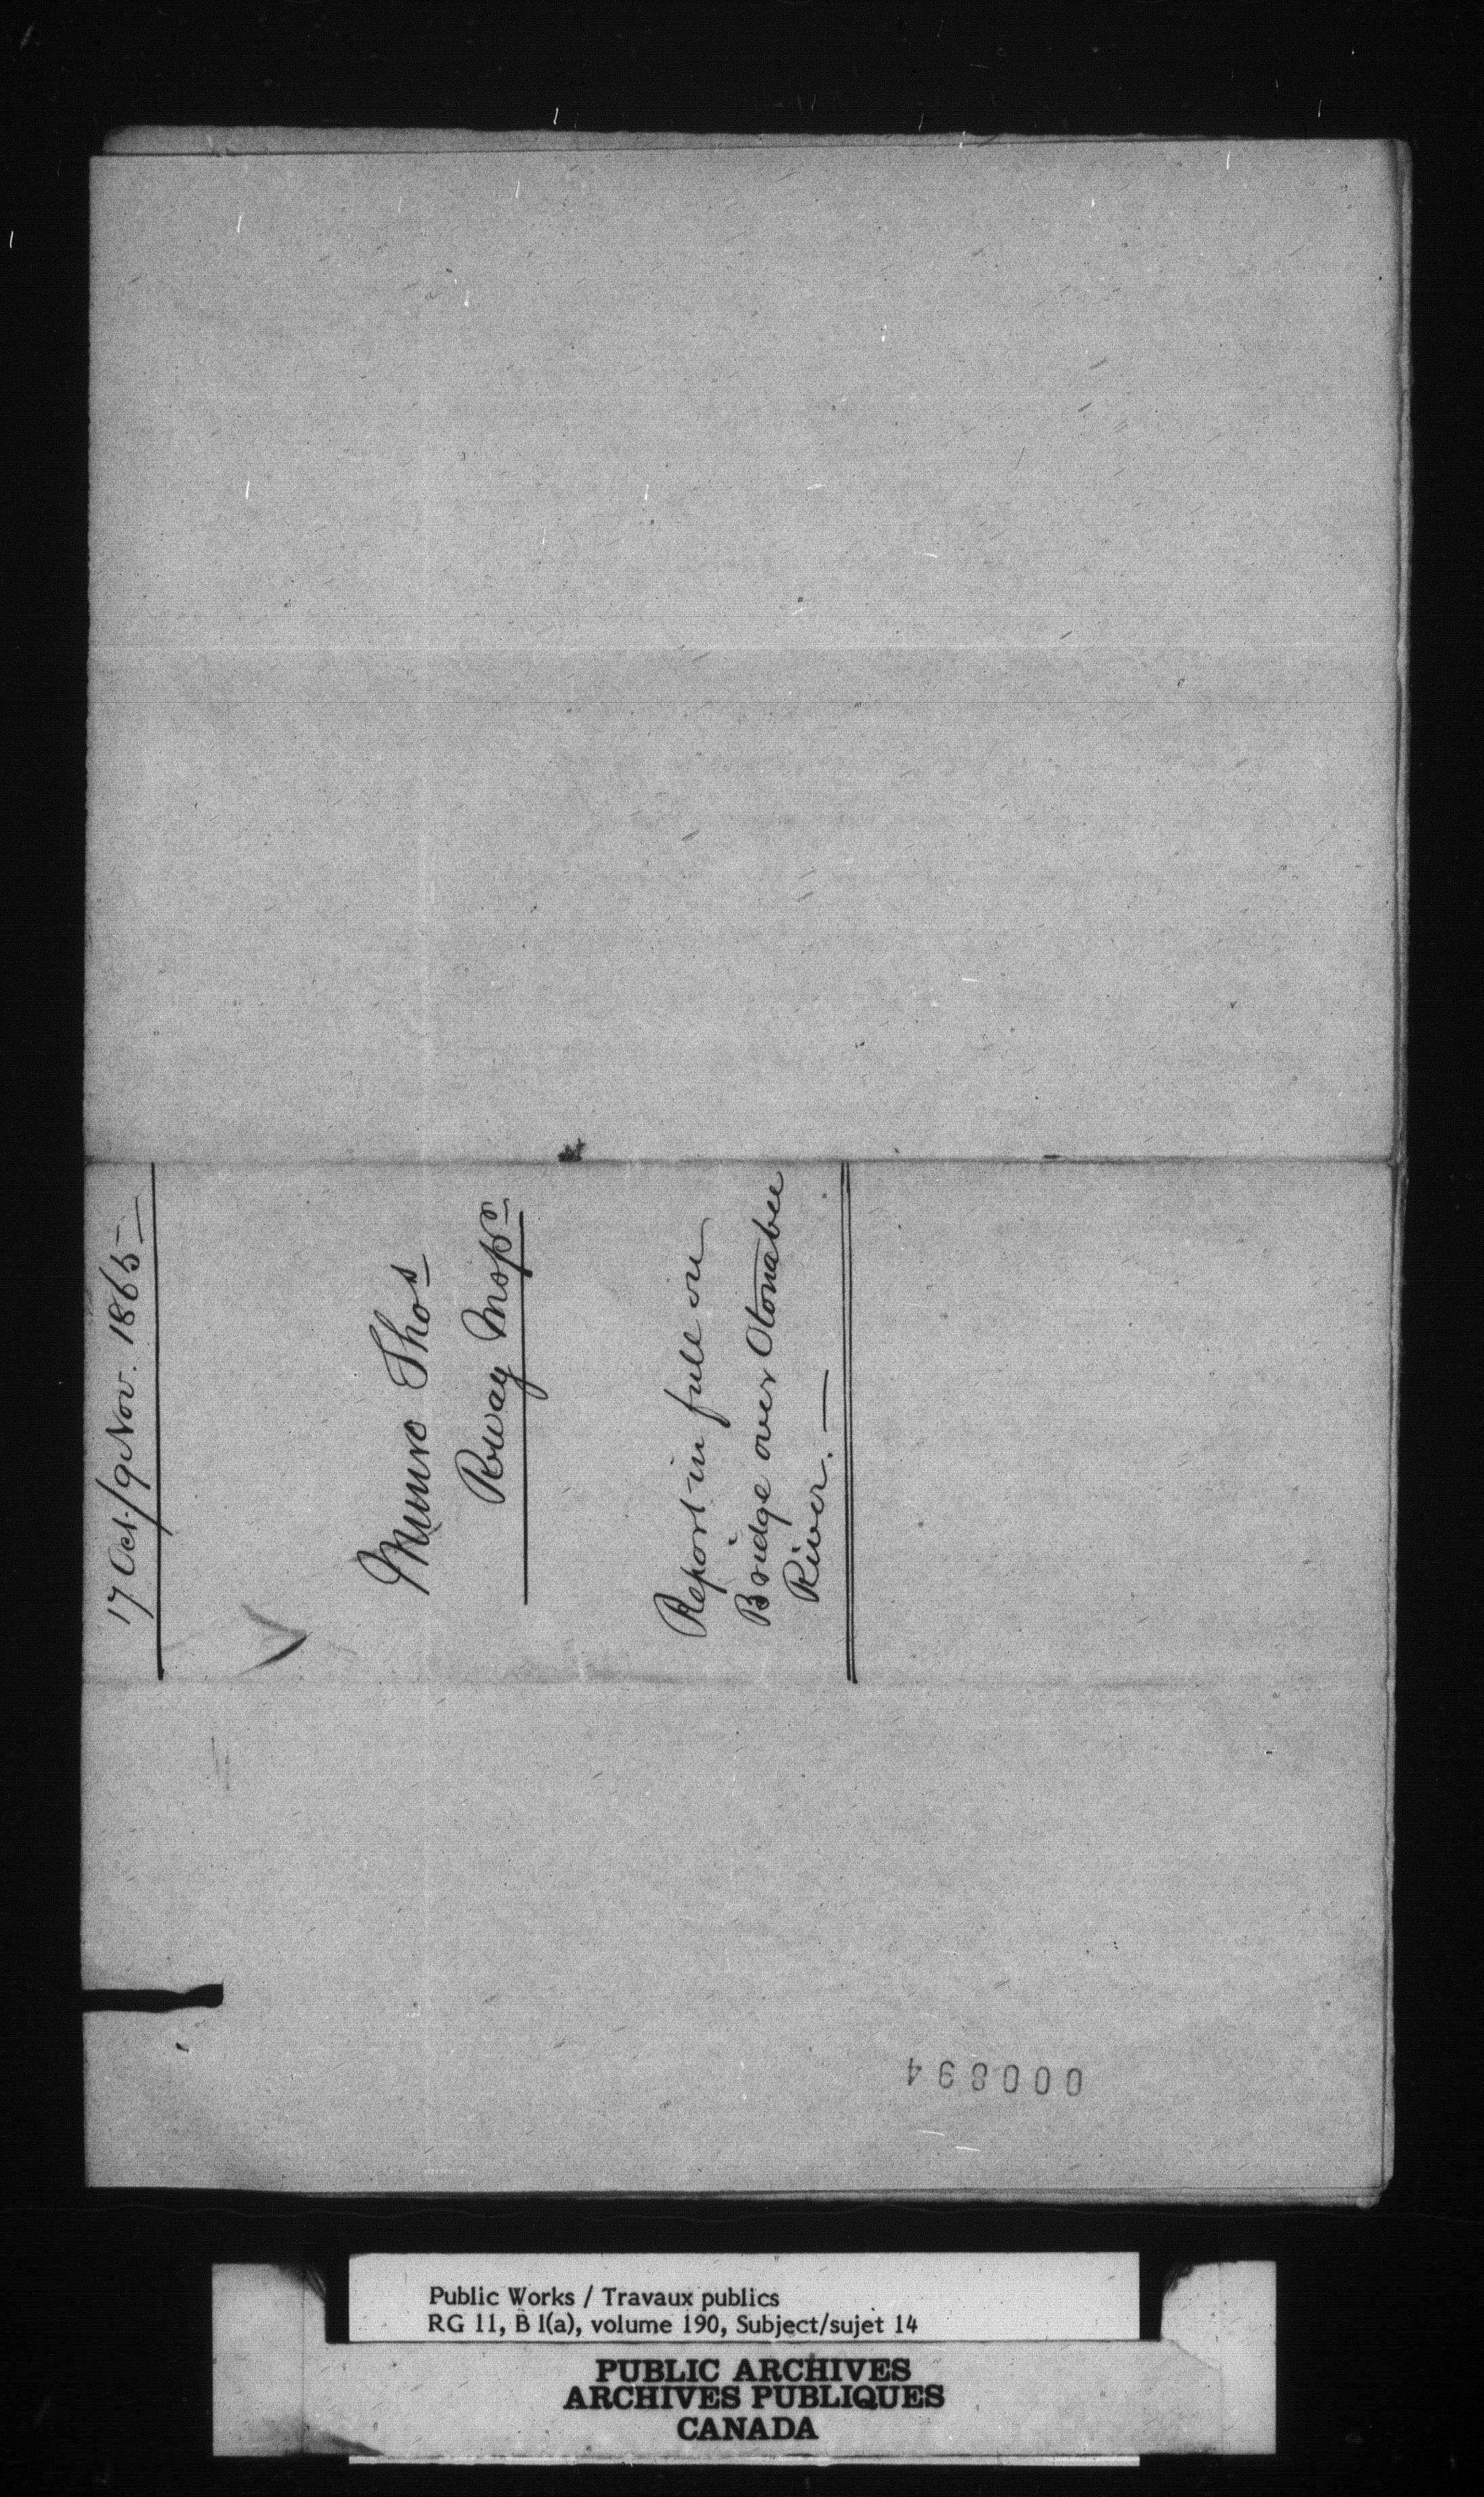 17 Oct/9 Nov. 1865
Munro Thos
Rway Inspr
Report in full on
Bridge over Otonabee
River.
000894
Public Works / Travaux publics
RG 11, B 1(a), volume 190, Subject/sujet 14
PUBLIC ARCHIVES
ARCHIVES PUBLIQUES
CANADA